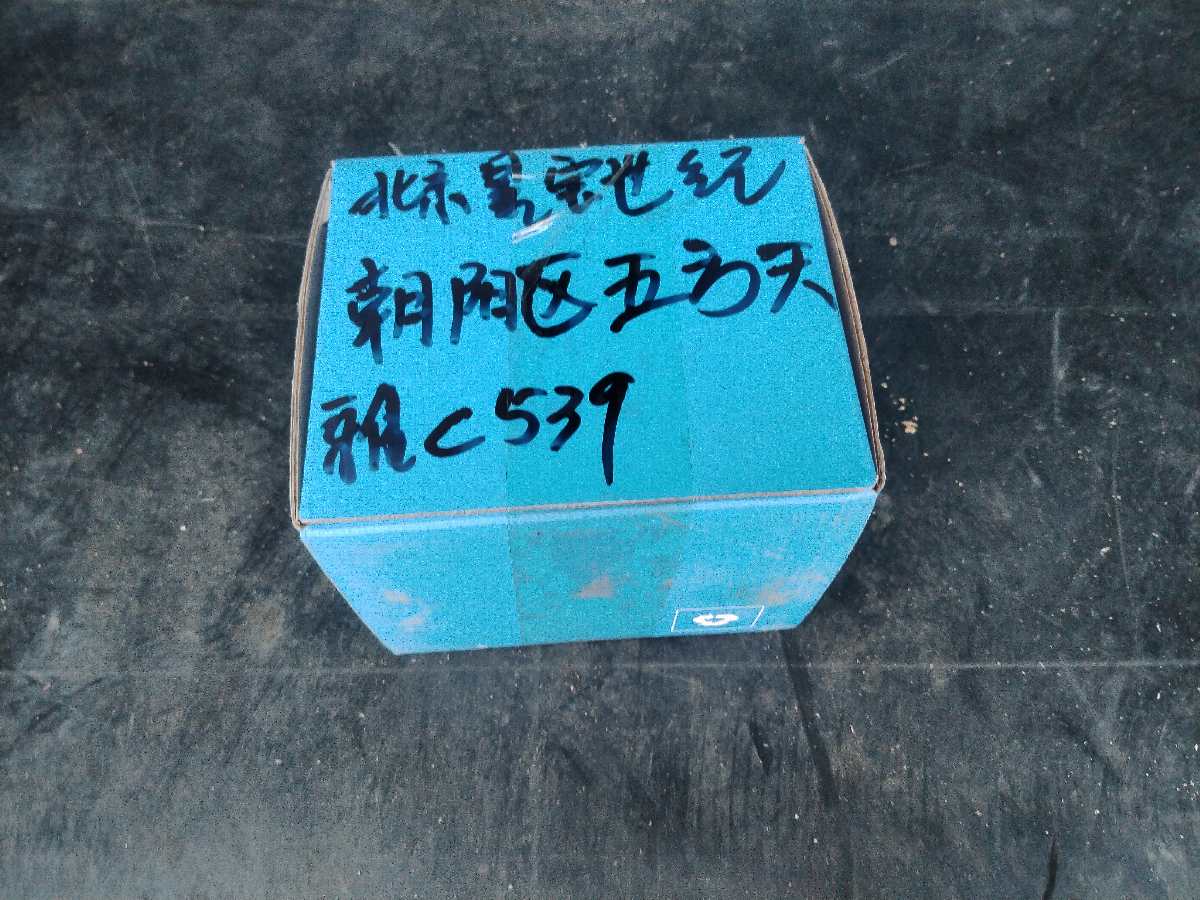 北京星宝世纪
朝阳区五方天
雅C539